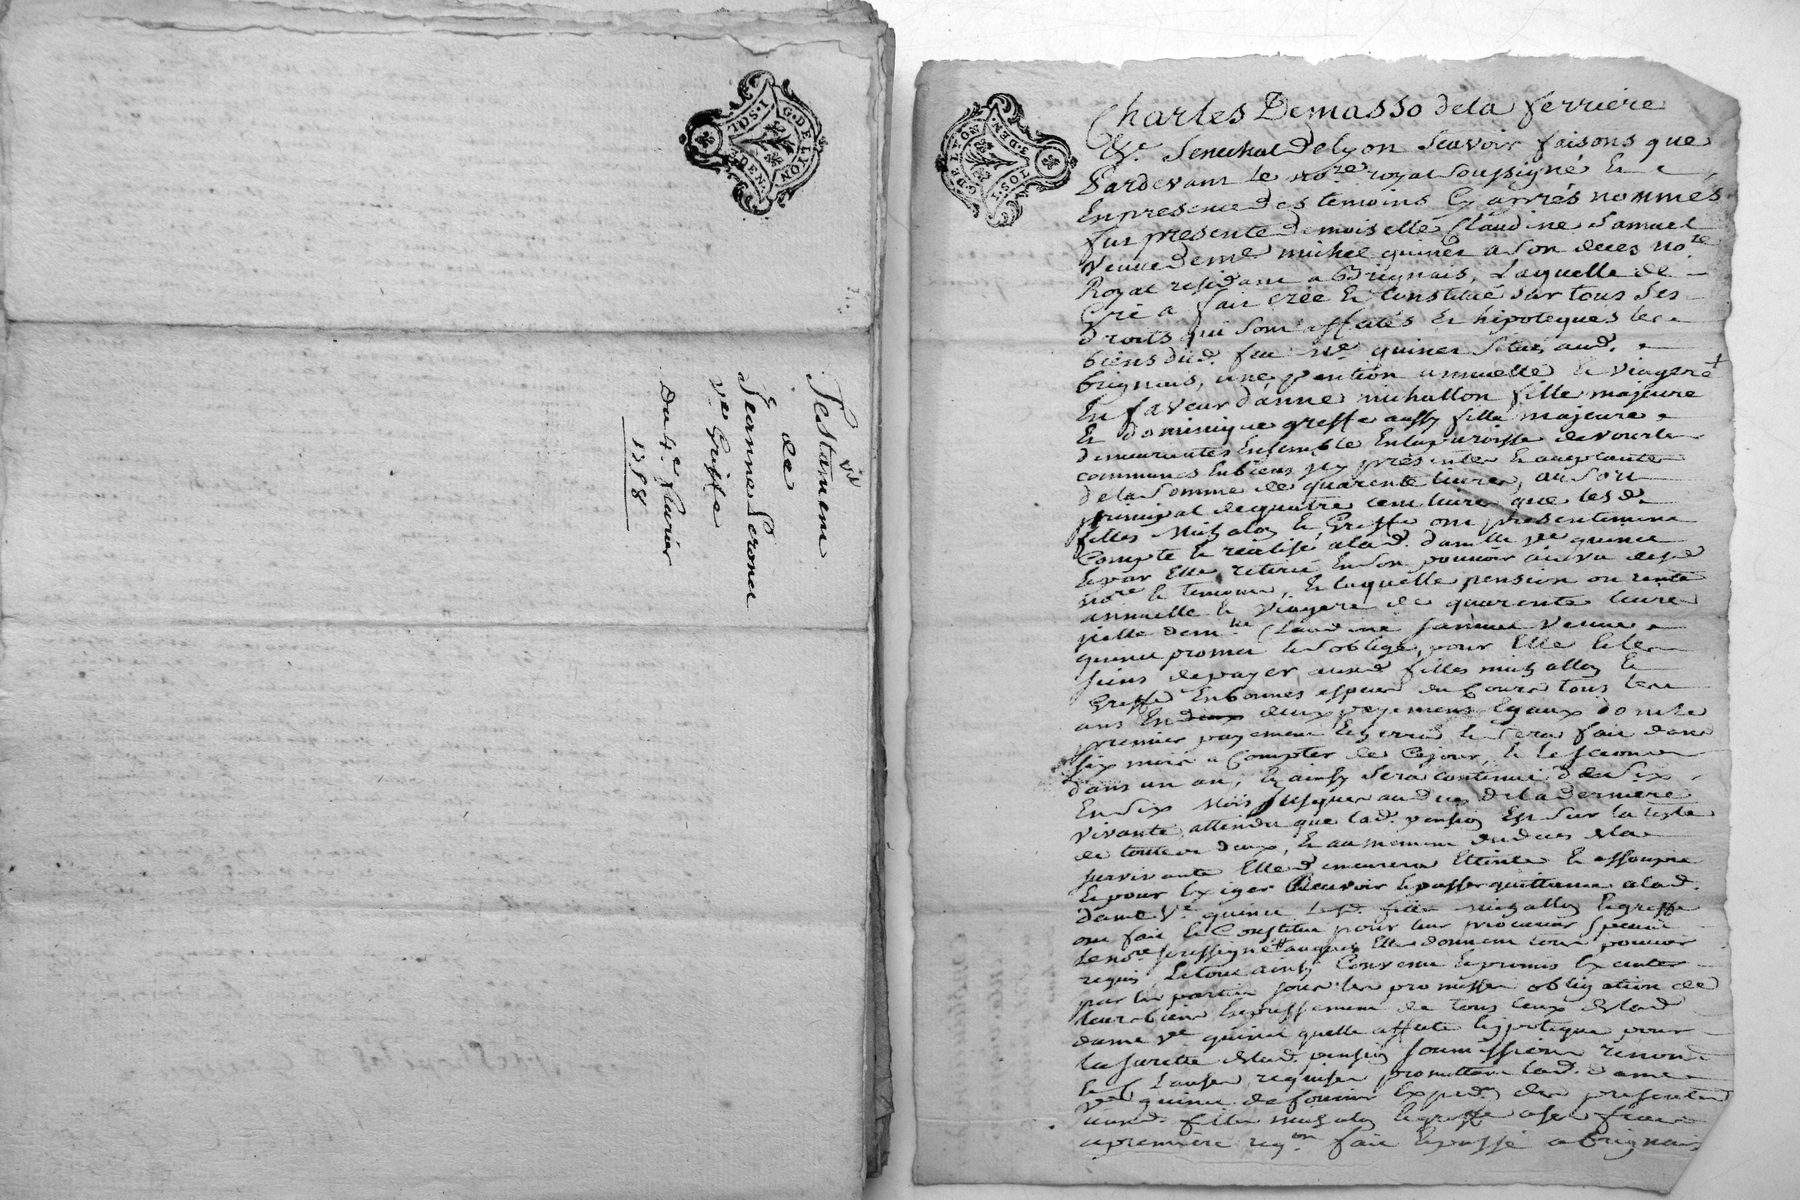 G. DE LYON
1. SOL. DEN.
Testament
de
Jeanne
ve Griffe
Du 4e
1788
G. DE LYON
1. SOL. 3. DEN.
Charles Demasso dela ferriere
Senechal Delyon scavoir faisons que
Pardevant le nore royal soussigné Et
En presence des temoins Cy aprés nommés
fut presente demoiselle Claudine Samuel
Veuve de me michel quinet a son deces nore
Royal residant a Brignais, Laquelle de
Gré a fait crée Et Constitué sur tous ses
droits qui sont affectés Et hipoteques les
biens dud. feu me quinet situés aud.
brignais, une pention annuelle Et viagere
En faveur danne michallon fille majeure
Et dominique greffe aussy fille majeure
demeurantes Ensemble Enla paroisse de vourle
communes En biens Icy presentes Et acceptantes
de la somme de quarente livres, au sort
principal de quatre cent livres que les d.
filles Michalon Et Greffe ont presentement
Compté Et realisé a lad. damlle ve quinet
Et par Elle retiré En son pouvoir au vu desd.
nore Et temoins, Et laquelle pension ou rente
annuelle Et viagere de quarente livres
lad. demlle Claudine Samuel veuve
quinet promet Et s'oblige, pour Elle Et les
siens de payer auxd. filles michallon Et
Greffe En bonnes especes du Cours tous les
ans En deux payemens Egaux dont le
premier payement Et sera fait dans
six mois a Compter de Cejour, Et le second
dans un an, Et ainsy sera continué de six
En six Mois jusques au deces de la derniere
vivante attendu que lad. pension Est sur la teste
de toutes deux, Et au moment du deces de la
survivante Elle demeurera Etteinte Et assoupie
Et pour Exiger Recevoir Et passer quittance a lad.
dame ve quinet lesd. filles Michallon Et greffe
ont fait Et Constitué pour leur procureur special
le nore soussigné auquel Elles donnent tout pouvoir
requis. Le tout ainsy Convenu Et promis Executer
par les parties sous les promesses obligation de
leurs biens Et expressement de tous ceux de lad.
dame ve quinet quelle affecte Et hypoteque pour
la sureté de lad. pension soumissions renon
Et Clauses requises promettant lad. dame
ve quinet de fournir Expedon des presentes
auxd. filles michalon Et greffe a ses frais
a premiere reqon fait Et passé a brignais